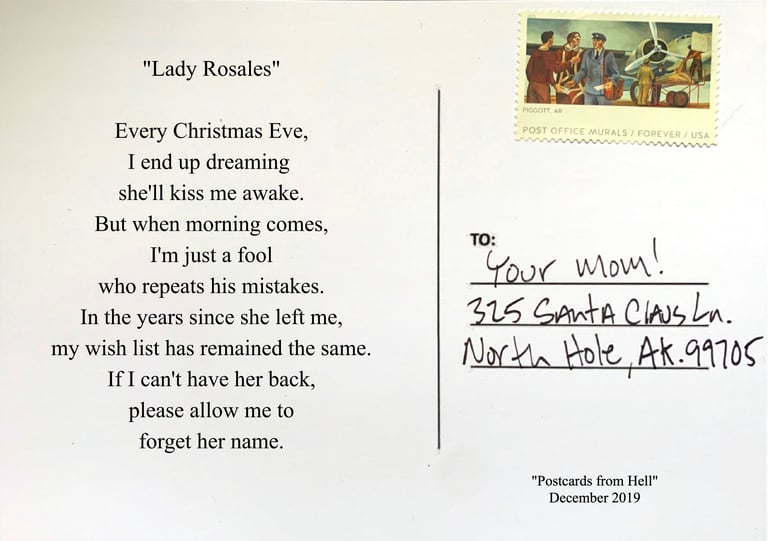 "Lady Rosales"
Every Christmas Eve,
I end up dreaming
she'll kiss me awake.
But when morning comes,
I'm just a fool
who repeats his mistakes.
In the years since she left me,
my wish list has remained the same.
If I can't have her back,
please allow me to
forget her name.
PIGGOTT, AR
POST OFFICE MURALS / FOREVER / USA
TO:
Your Mom!
325 Santa Claus Ln.
North Hole, AK. 99705
"Postcards from Hell"
December 2019